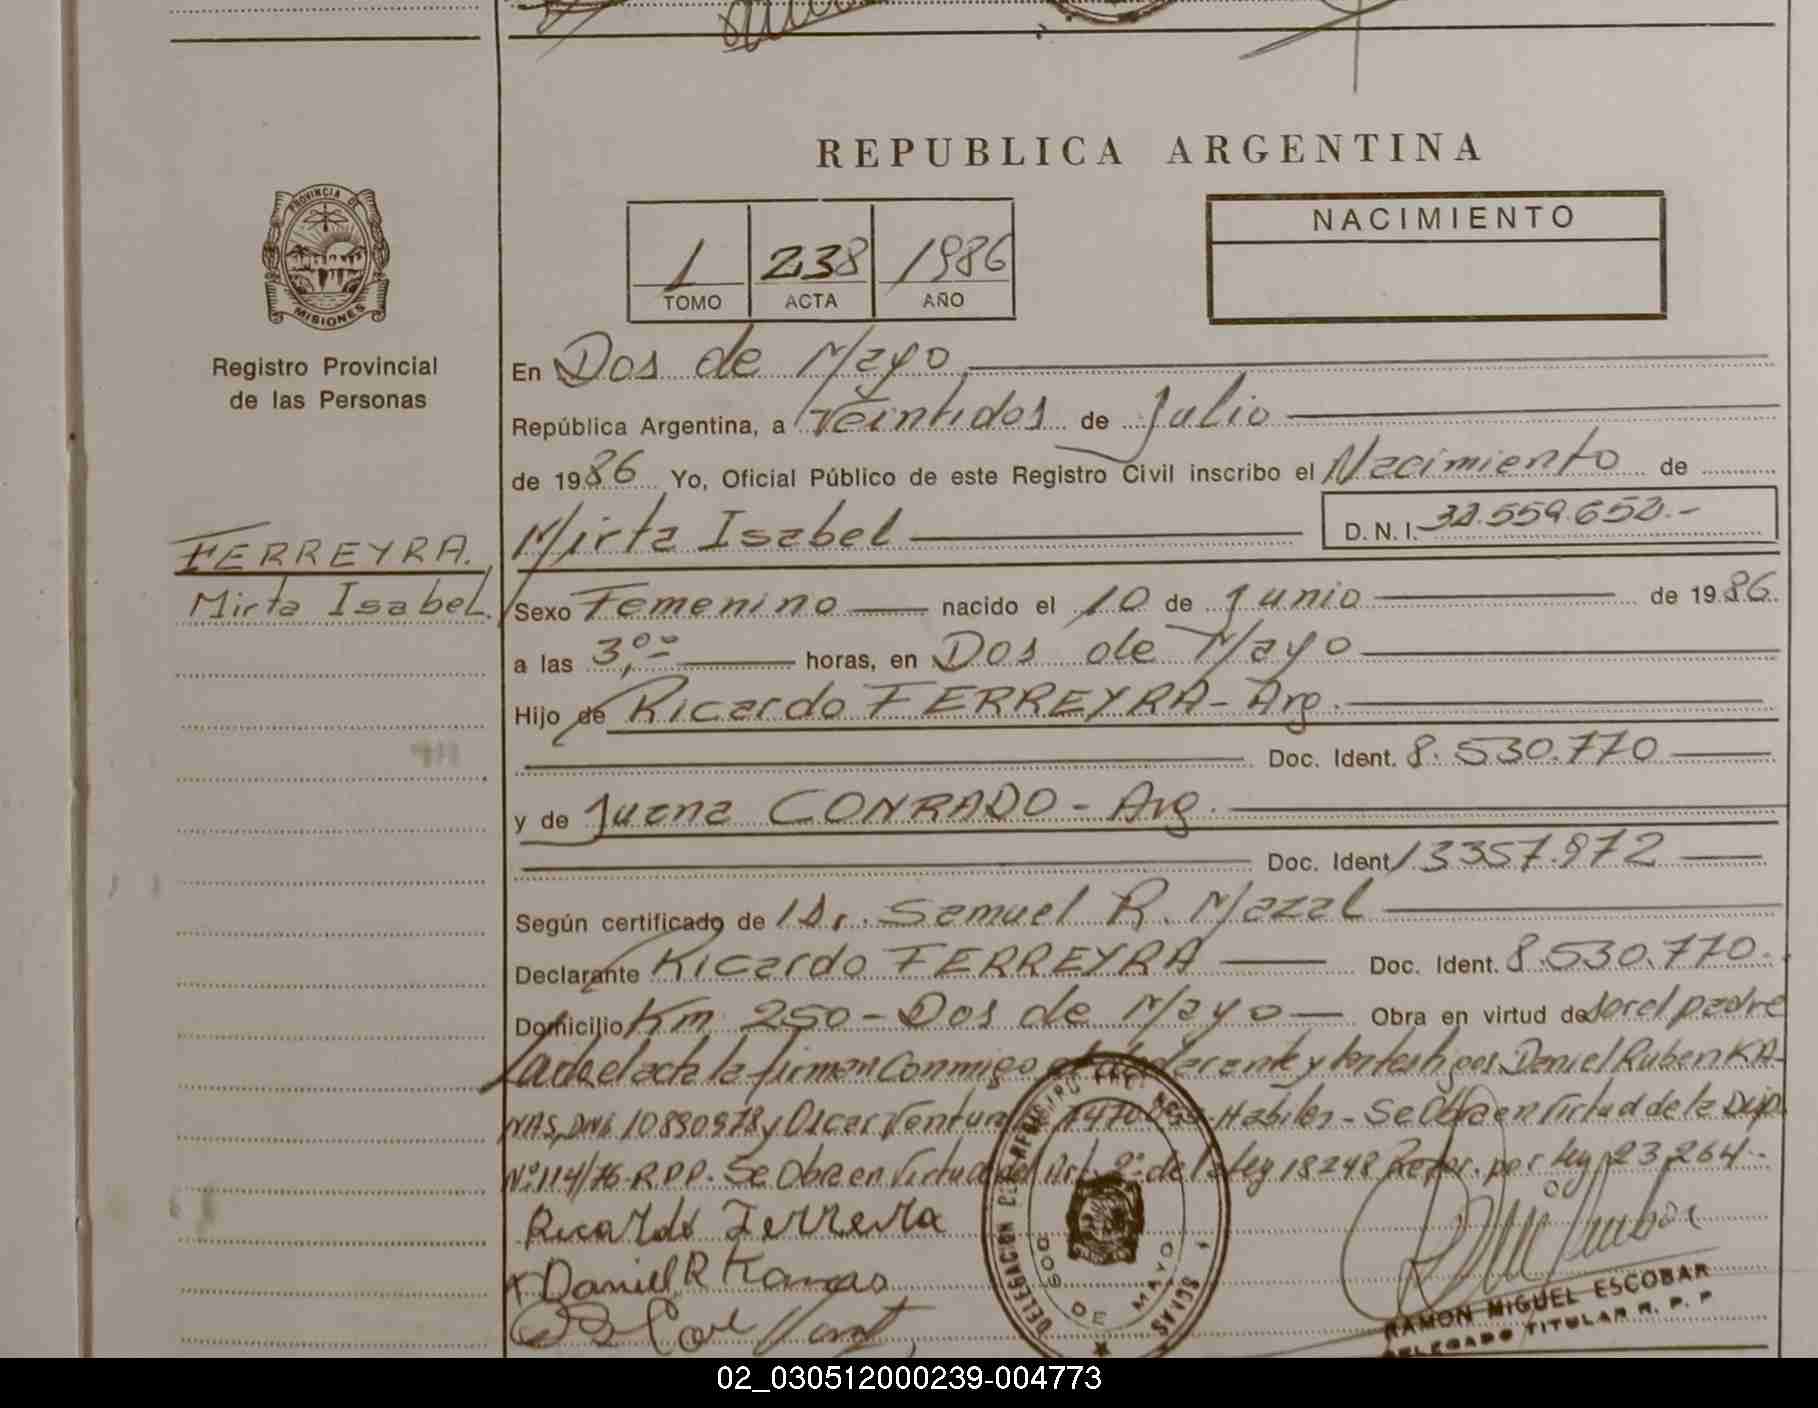 REPUBLICA ARGENTINA
PROVINCIA DE
MISIONES
Registro Provincial
de las Personas
1 238 1986
TOMO ACTA AÑO
NACIMIENTO
En Dos de Mayo
República Argentina, a Veintidos de Julio
de 1986 Yo, Oficial Público de este Registro Civil inscribo el Nacimiento de
FERREYRA.
Mirta Isabel.
Mirta Isabel D.N.I.
Sexo Femenino nacido el 10 de Junio de 1986.
a las 3,oo horas, en Dos de Mayo
Hijo de Ricardo FERREYRA - Arg.
Doc. Ident. 8.530.770
y de Juana CONRADO - Arg.
Doc. Ident. 13357.872
Según certificado de Dr. Samuel R. Mazal
Declarante Ricardo FERREYRA Doc. Ident. 8.530.770.
Domicilio Km 250 - Dos de Mayo Obra en virtud de ser el padre
el acta la firman conmigo el declarante y testigos Daniel Ruben KA-
NAS, DNI 10890978 y Oscar Ventura Habiles - Se Obra en Virtud de la Disp.
Nº 114/76-R.P.P. - Se Obra en Virtud del Art. 2º de la ley 18248 por ley 23264 -
Ricardo Ferrera
Daniel R Kanas
DOS DE MAYO
RAMON MIGUEL ESCOBAR
DELEGADO TITULAR R. P. P.
02_030512000239-004773